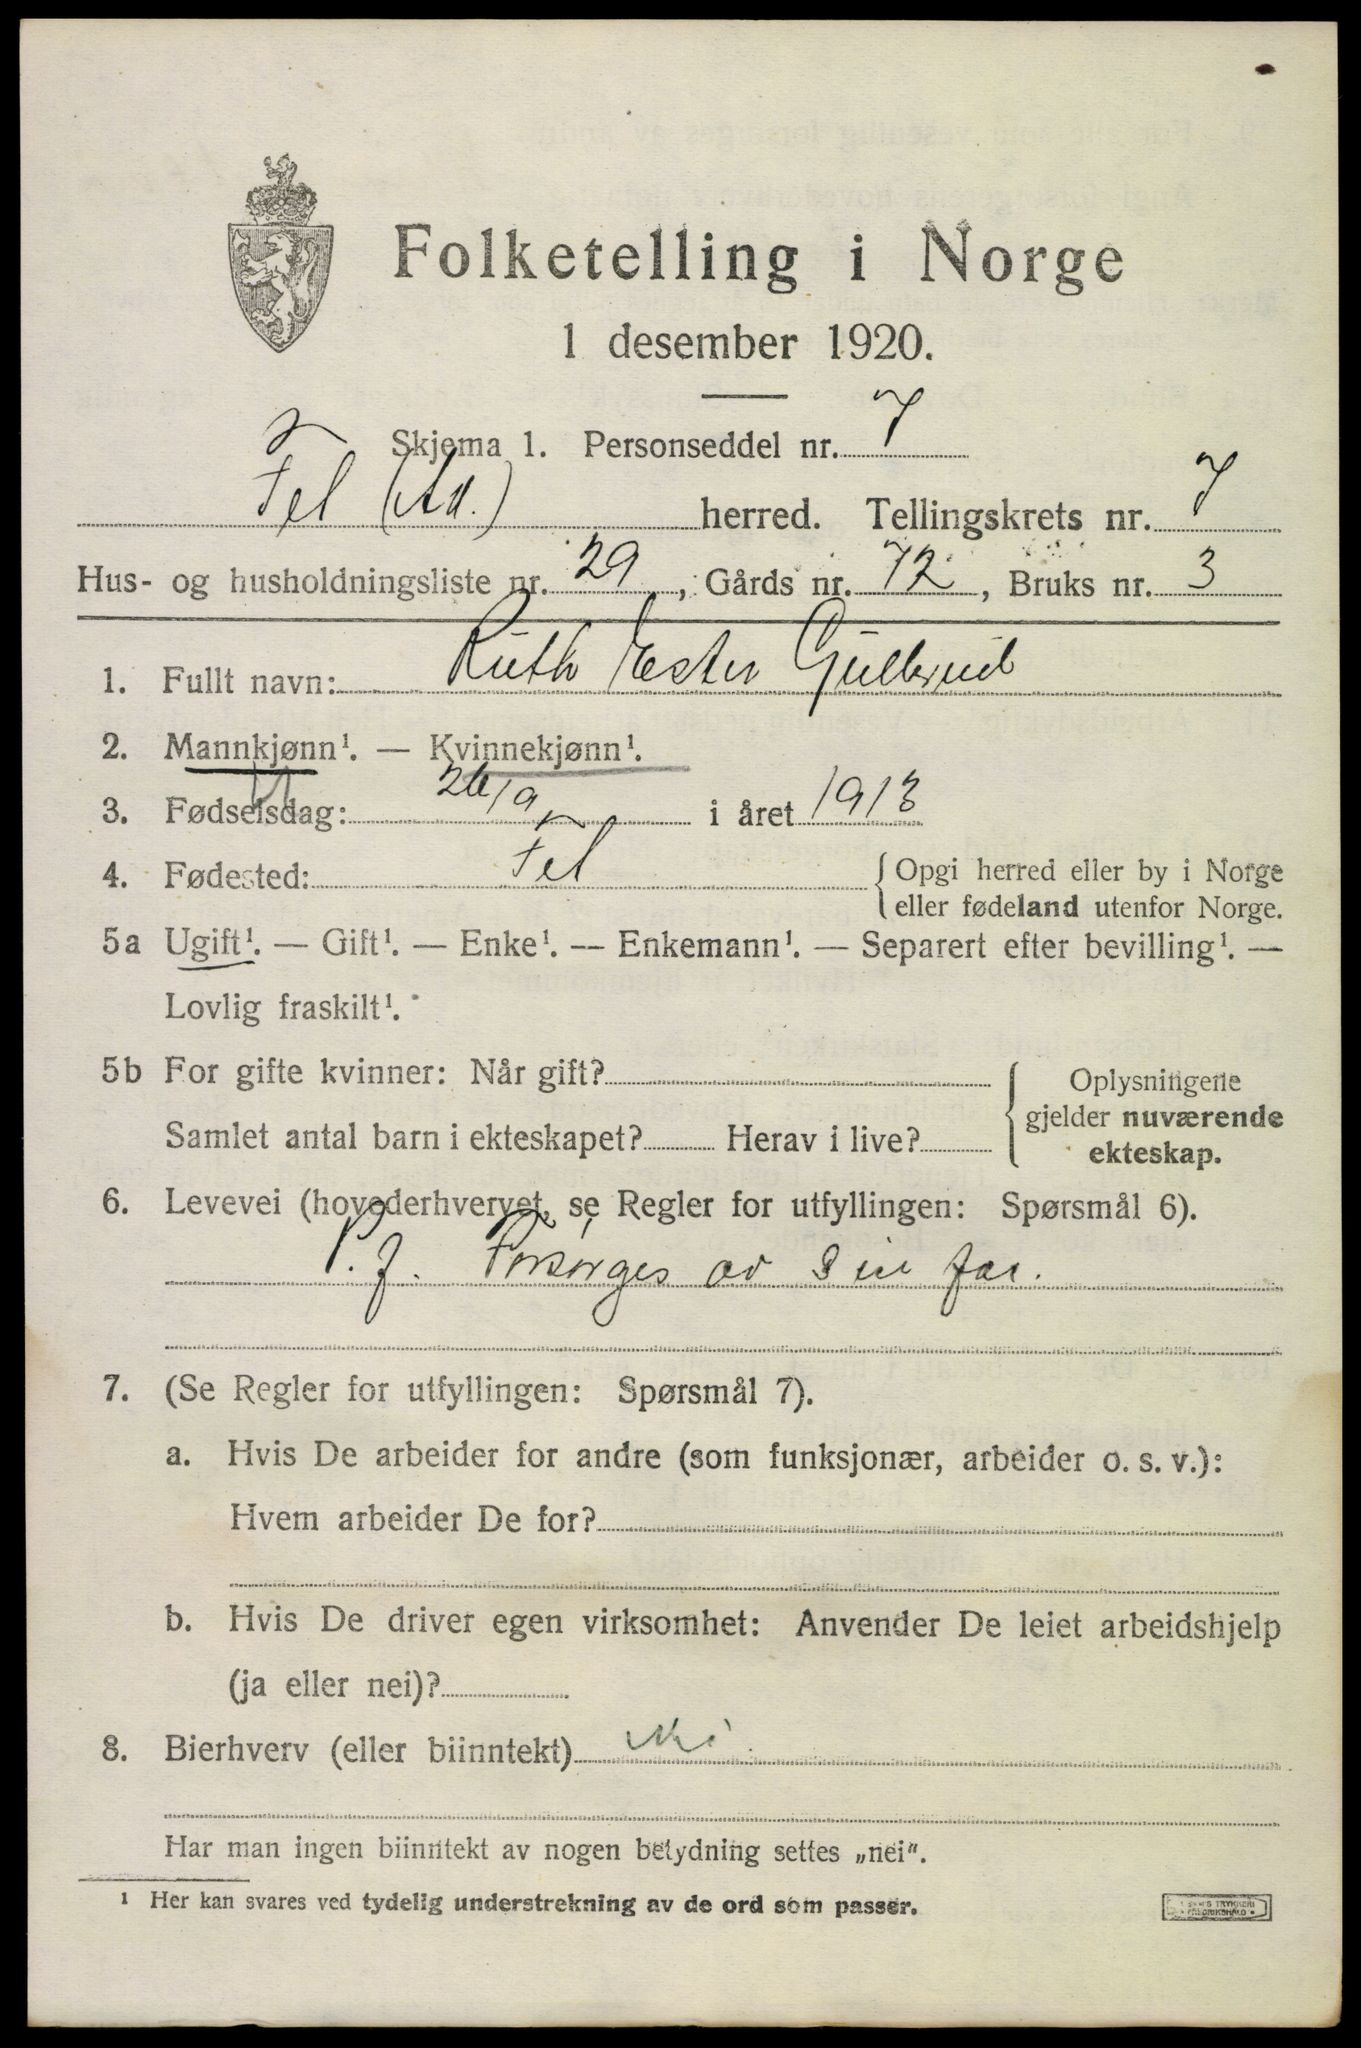 Folketelling i Norge
1 desember 1920.
Skjema 1. Personseddel nr. 7
Fet (Ad.) herred. Tellingskrets nr. 7
Hus- og husholdningsliste nr. 29, Gårds nr. 72, Bruks nr. 3
1. Fullt navn: Ruth Ester Gulbrud
2. Mannkjønn¹. — Kvinnekjønn¹.
3. Fødselsdag: 26/9 i året 1913
4. Fødested: Fet {Opgi herred eller by i Norge
eller fødeland utenfor Norge.
5a Ugift¹. — Gift¹. — Enke¹. — Enkemann¹. — Separert efter bevilling¹. —
Lovlig fraskilt¹.
5b For gifte kvinner: Når gift? {Oplysningene
gjelder nuværende
Samlet antal barn i ekteskapet? Herav i live?
ekteskap.
6. Levevei (hovederhvervet, se Regler for utfyllingen: Spørsmål 6).
P. f. Forsørges av sin far.
7. (Se Regler for utfyllingen: Spørsmål 7).
a. Hvis De arbeider for andre (som funksjonær, arbeider o. s. v.):
Hvem arbeider De for?
b. Hvis De driver egen virksomhet: Anvender De leiet arbeidshjelp
(ja eller nei)?
8. Bierhverv (eller biinntekt) nei
Har man ingen biinntekt av nogen betydning settes „nei".
¹ Her kan svares ved tydelig understrekning av de ord som passer.